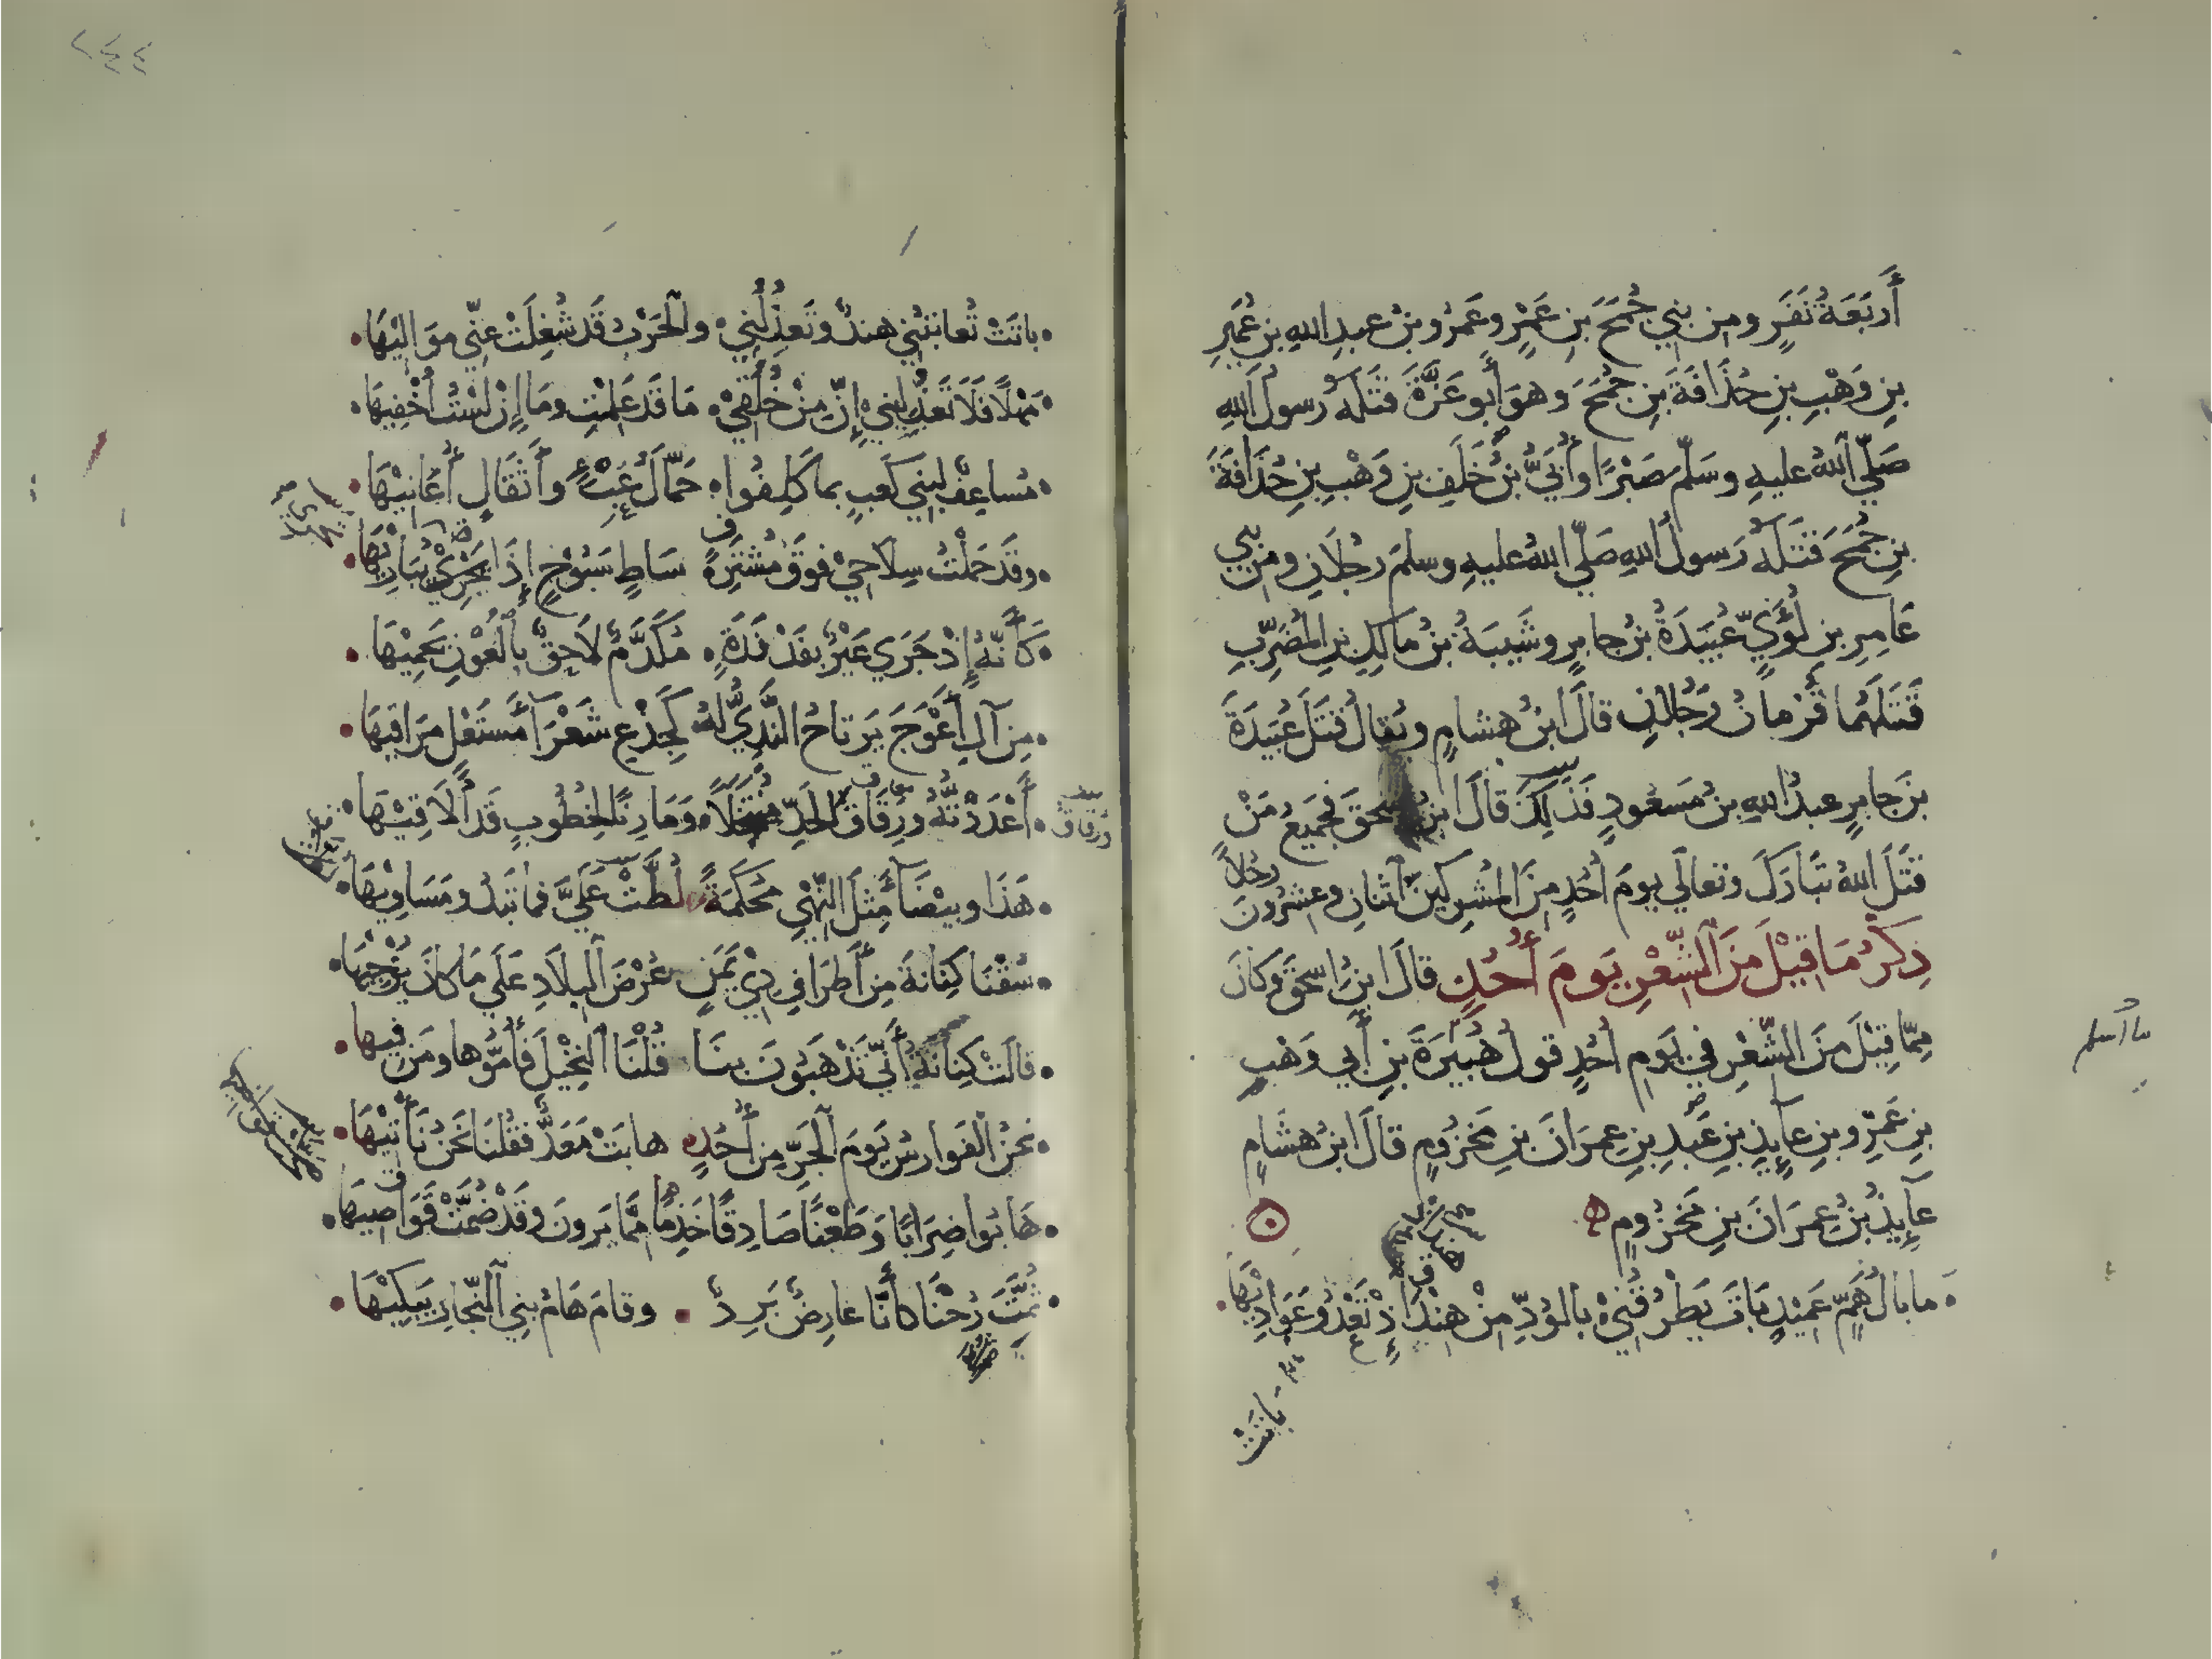 أَربَعَةُ نَفَرٍ ومِن بني جُمَحَ بنِ عَمْرٍو عَمْرُو بنُ عبدِ اللهِ بنِ عُمَيرِ
بنِ وَهْبِ بنِ حُذَافَةَ بنِ جُمَحَ وهوَ أَبو عَزَّةَ قتَلَهُ رسولُ اللهِ
صَلّي اللهُ عليهِ وسَلّم صَبْرًا وأُبَيُّ بنُ خَلَفِ بنِ وَهْبِ بنِ حُذَافَةَ
بنِ جُمَحَ قتَلَهُ رَسولُ اللهِ صَلّي اللهُ عليهِ وسلمَ رجُلَانِ ومن بني
عَامِرِ بنِ لُؤَيٍّ عُبَيدَةُ بنُ جابرٍ وشَيبَةُ بنُ مالكِ بنِ المُضَرِّبِ
قَتَلَهُما قُزْمانُ رَجُلانِ قالَ ابنُ هشامٍ ويُقالُ قتَلَ عُبَيدَةَ
بنَ جابرٍ عبدُ اللهِ بنُ مَسعُودٍ فَذلِكَ قالَ ابنُ اسحقَ فجَميعُ مَنْ
قتَلَ اللهُ تبَارَكَ وتعالَي يومَ أُحُدٍ مِنَ المُشرِكينَ اثنانِ وعشرُونَ رجُلاً
ذِكرُ مَا قِيْلَ مِنَ الشِّعْرِ يَومَ أُحُدٍ قالَ ابنُ اسحقَ وكانَ
مِمّا قِيْلَ مِنَ الشِّعْرِ في يَومِ أُحُدٍ قولُ هُبَيْرَةَ بنِ أَبي وَهْبِ
بنِ عَمْرِو بنِ عآيِذِ بنِ عَبدِ بنِ عِمرَانَ بنِ مَخزُومٍ قالَ ابنُ هشَامٍ
عآيِذُ بنُ عِمرَانَ بنِ مَخزُومٍ ه
مابالُ هَمٍّ عَمِيْدٍ بَاتَ يَطْرُقُنِيْ بالوُدِّ مِنْ هِنْدَ إِذْ تَعْدُو عَوَادِيْهَا
باتَتْ
٢٤٤
باتَتْ تُعاتبُني هندٌ وتَعذُلُنِيْ والحَرْبُ قَد شُغِلَتْ عنّي مَوَاليْهَا
مَهْلاً فَلَا تَعذُلِيْنيْ إِنَّ مِنْ خُلُقِيْ مَا قَد عَلِمْتِ ومَا إِنْ لسْتُ أُخْفِيهَا
مُساعِفٌ لبَنِي كَعبٍ بما كَلِفُوا حَمَّالُ عِبْءٍ وأَثقَالٍ أُعَانِيْهَا
وقَد حَمَلْتُ سِلَاحِيْ فوقَ مُشتَرَفٍ سَاطٍ سَبُوْحٍ إِذَا يَجْرِيْ يُبَارِيْهَا
كَأَنَّهُ إِذْ جَرَي عَيْرٌ بفَدْفَدَةٍ مُكَدَّمٌ لَاحِقٌ بالعُوْنِ يَحمِيْهَا
مِن آلِ أَعْوَجَ يَرتاحُ النَّدِيُّ لهُ كَجِذْعِ شَعْرَآءَ مُستَعْلٍ مَرَاقِيهَا
أَعْدَدْتُهُ ورِقَاقَ الحَدِّ مُنتَخَلًا ومَارِنًا لخُطُوبٍ قَد أُلَاقِيْهَا
ورقاق
هَذَا وبيْضَآءُ مِثلُ النِّهْيِ مُحْكَمَةٌ لُطَّتْ عَلَيَّ فما تَبْدُو مَسَاوِيْهَا
سُقْنَا كِنَانةَ مِن أَطرَافِ ذِيْ يَمَنٍ عُرْضَ البلَادِ عَلَي مَا كانَ يُزْجِيْهَا
قالَتْ كِنانةُ أَنّي تَذْهَبُونَ بِنَا قُلْنَا النَّخِيْلَ فَأَمُّوْها ومَن فِيهَا
نحنُ الفوارسُ يَومَ الجَرِّ مِن أُحُدٍ هابَتْ مَعَدٌّ فقُلنَا نحنُ نَأْتيْهَا
هَابُوا ضِرَابًا وطَعْنًا صَادِقًا خَذِمًا ممَّا يَرونَ وقَدْ ضُمَّتْ قَوَاصِيهَا
ثُمَّتَ رُحْنَا كأَنَّا عارِضٌ بَرِدٌ وقامَ هَامُ بني النَّجّارِ يَبكِيْهَا